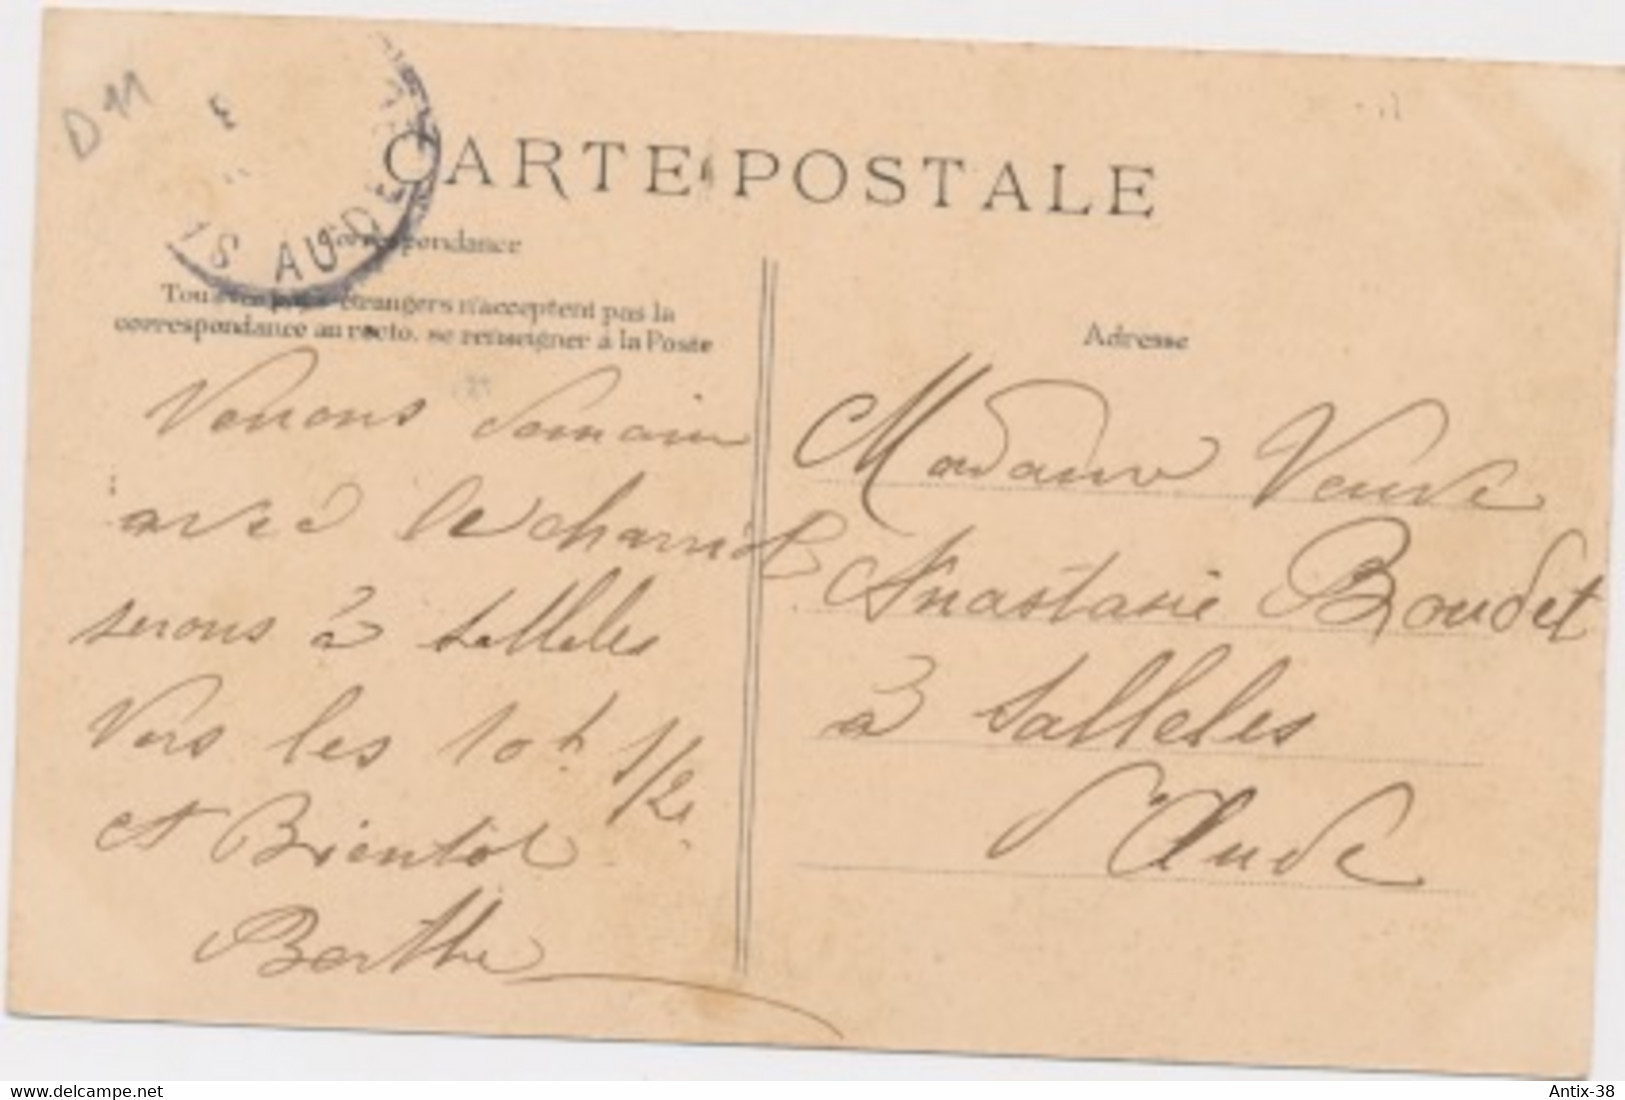 D 11
S AUDE
CARTE POSTALE
Correspondance
Tous les pays étrangers n'acceptent pas la
correspondance au recto, se renseigner à la Poste
Adresse
Venons Demain
avec le charriot
serons à Salleles
Vers les 10 h 1/2
et Bientôt
Berthe
Madame Veuve
Anastasie Boudet
à Salleles
d'Aude
www.delcampe.net
Antix-38